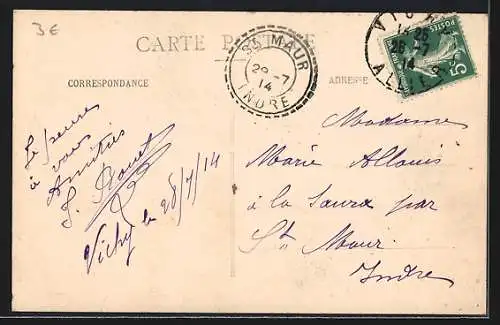 3€
CARTE POSTALE
CORRESPONDANCE
ADRESSE
ST MAUR
29 -7
14
INDRE
VICHY
28 -7
14
ALLIER
POSTES
5c
Je pense
à vous
Amitiés
Vichy le 28/7/14
Madame
Marie Allouis
à la par
St Maur
Indre